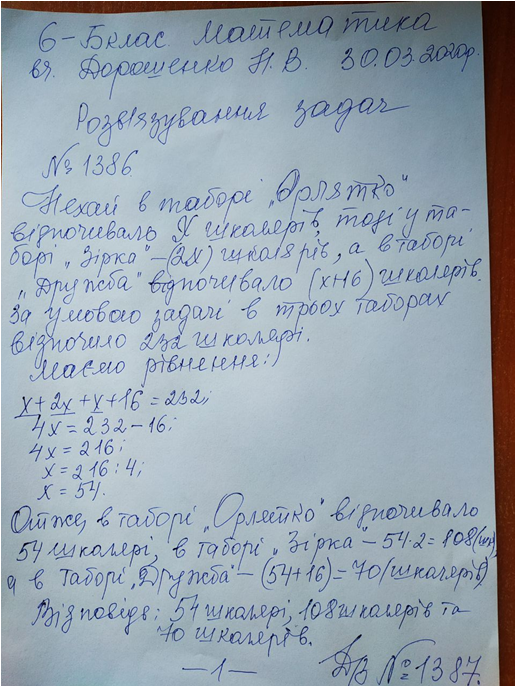 6-Б клас. Математика
вч. Дорошенко Н. В. 30.03.2020р.
Розв'язування задач
№ 1386.
Нехай в таборі „Орлятко"
відпочивало X школярів, тоді у та-
борі „Зірка" – (2x) школярів, а в таборі
„Дружба" відпочивало (x+16) школярів.
За умовою задачі в трьох таборах
відпочило 232 школярі.
Маємо рівняння:
x + 2x + x + 16 = 232;
4x = 232 - 16;
4x = 216;
x = 216 : 4;
x = 54.
Отже, в таборі „Орлятко" відпочивало
54 школярі, в таборі „Зірка" – 54·2 = 108 (шк),
а в таборі „Дружба" – (54+16) = 70 (школярів)
Відповідь: 54 школярі, 108 школярів та
70 школярів.
— 1 — ДЗ № 1387.